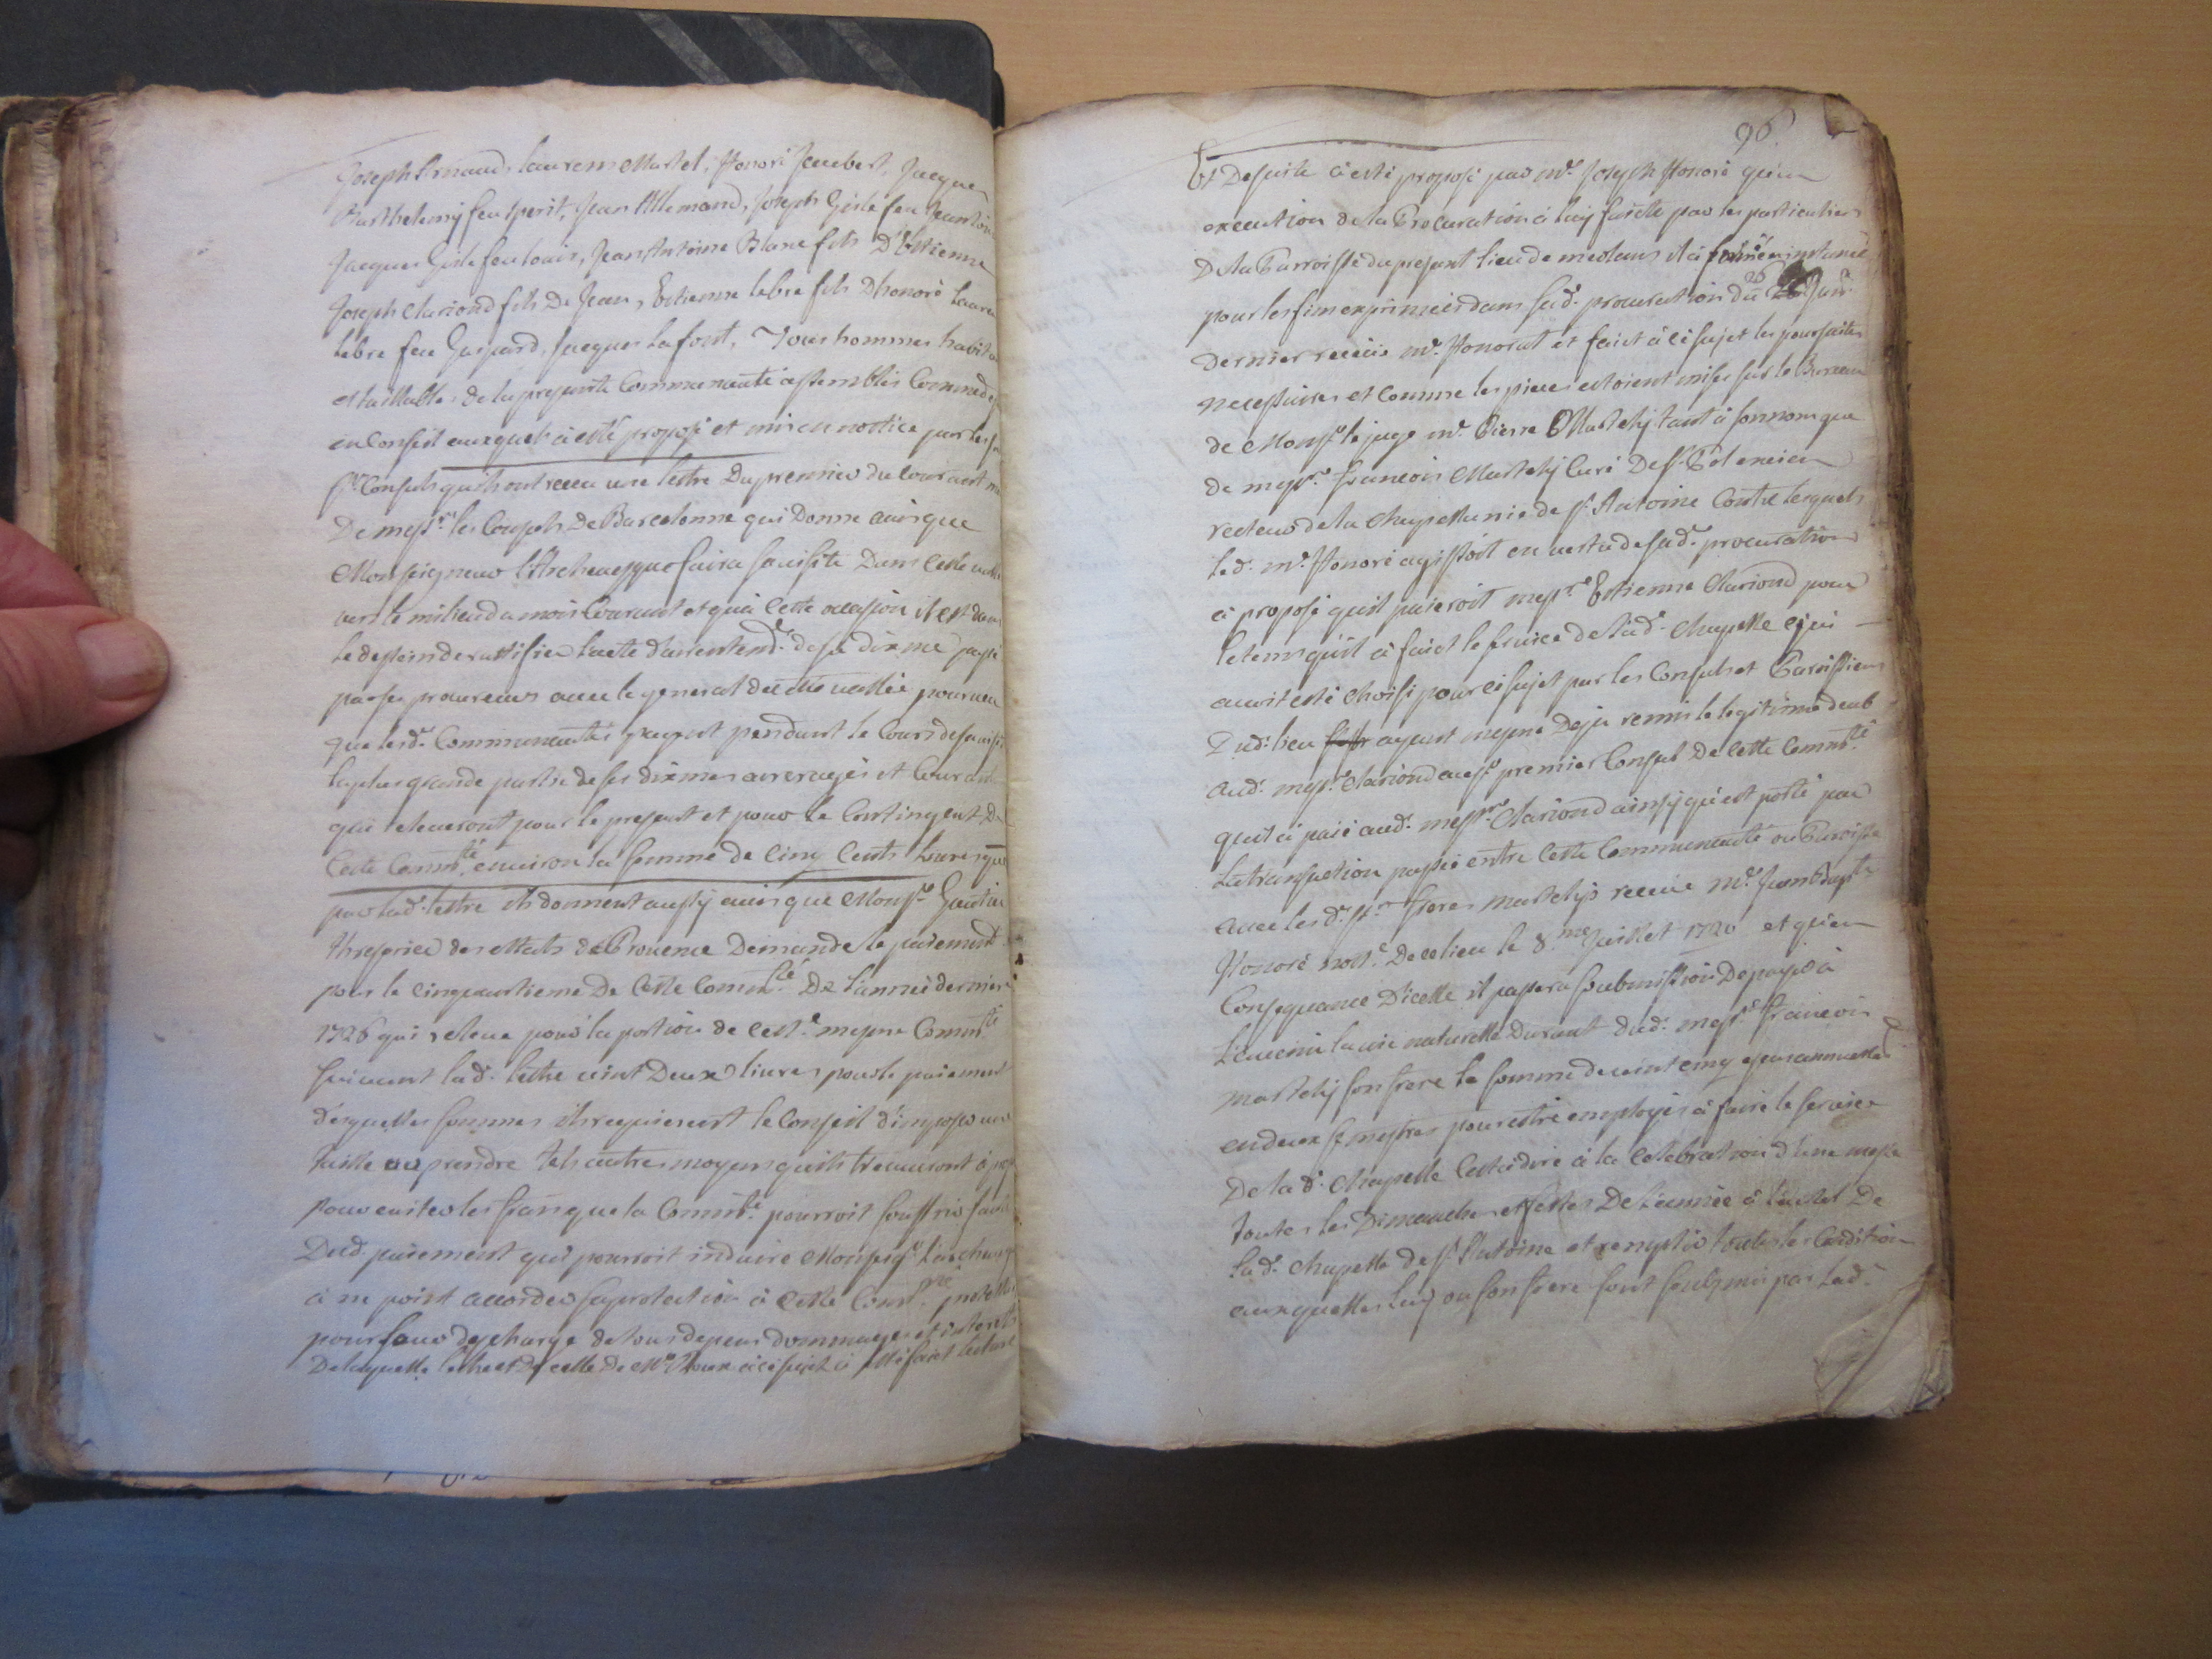 Joseph Arnaud, laurens Martel, honoré Jaubert, Jacques
Barthelemy feu Sperit, Jean Allemand, Joseph Gisle feu Jean
Jacques Gisle feu louis, Jean Antoine Blanc fils D'Estienne
Joseph Clariond fils De Jean, Estienne lebre fils Dhonoré
lebre feu Gaspard, Jacques Lafont, Tous hommes
et taillables de la presente Communauté assemblés Comme
en Conseil auxquels à esté proposé et mis en nottice par les
srs Consuls quils ont receu une lettre Du premier du courant
De messrs les Consuls De Barcelonne qui Donne avis que
Monseigneur l'Archevesque faira sa visite Dans Cette
vers le milieu du mois Courant et qu'à Cette occasion il est dans
le dessein de rattifier l'acte d'arrentemt. de sa dixme passé
par ses procureurs avec le general de vallée pourveu
que lesd. Communautés payent pendant le Cours de sa
la plus grande partie de ses dixmes arreragés et
qui releveront pour le present et pour le Contingent De
Cette Commté. environ la somme de Cinq Cents livres que
par lad. lettre ils donnent aussy avis que Monsr. Gautier
thresorier des estats de Provence Demande le paiement
pour le Cinquantieme De Cette Commté. De L'année derniere
1726 qui releve pour la portion de cest.e mesme Commté
suivant lad. lettre vint Deux livres pour le paiement
desquelles sommes ils requierent le Conseil d'imposer une
taille ou prendre tels autres moyens quils treuveront à
pour eviter les frais que la Commté. pourroit souffrir faute
Dud. paiement qui pourroit induire Monseigr
à ne point accorder sa protection à Cette Commté.
pour leur descharge de tous depens dommages et interets
De laquelle lettre et de celle De Mr Roux à ce sujet à esté faict lecture
96
Et De suite à esté proposé par me. Joseph Honoré qu'en
execution de la Procuration à luy faicte par les particuliers
De la Parroisse du present lieu de meolans il à formé instance
pour les fins exprimées dans sad. procuration du 26
dernier receüe me. Honorat et faict à ce sujet les poursuites
necessaires et comme les pieces estoient mises sur le Bureau
de Monsr le juge me. Pierre Martelly tant à son nom que
de messre. francois Martelly Curé De St. Pol ancien
recteur de la Chapellanie de St. Antoine Contre lesquels
led. me. Honoré agissoit en vertu de sad. procuration
à proposé quil paieroit messre Estienne Clariond pour
le tems qu'il à faict le service de lad. Chapelle qui
auoit esté choisi pour ce sujet par les Consuls et Paroissiens
Dud. lieu ayant mesme Deja remis le legitime deub
aud. messre. Clariond au sr premier Consul De Cette Commté.
quil à païé aud. messre. Clariond ainsy qu'est porté par
La transaction passée entre Cette Communauté ou Paroisse
avec lesd. srs. freres martellys receue me. Jean Baptte
Honoré nott.e De ce lieu le 8.me Juillet 1720 et qu'en
Consequance D'icelle il passera soubmission De payer à
L'avenir la vie naturelle Durant dud. messre. francois
martelly son frere la somme de vint cinq
en deux semestres pour estre employés à faire le service
De lad. Chapelle Cestadire à la Celebration d'une messe
toutes les Dimanches et festes De L'année à l'autel De
lad. chapelle de St. Antoine et remplir toutes les Conditions
auxquelles luy ou son frere sont soubmis par lad.